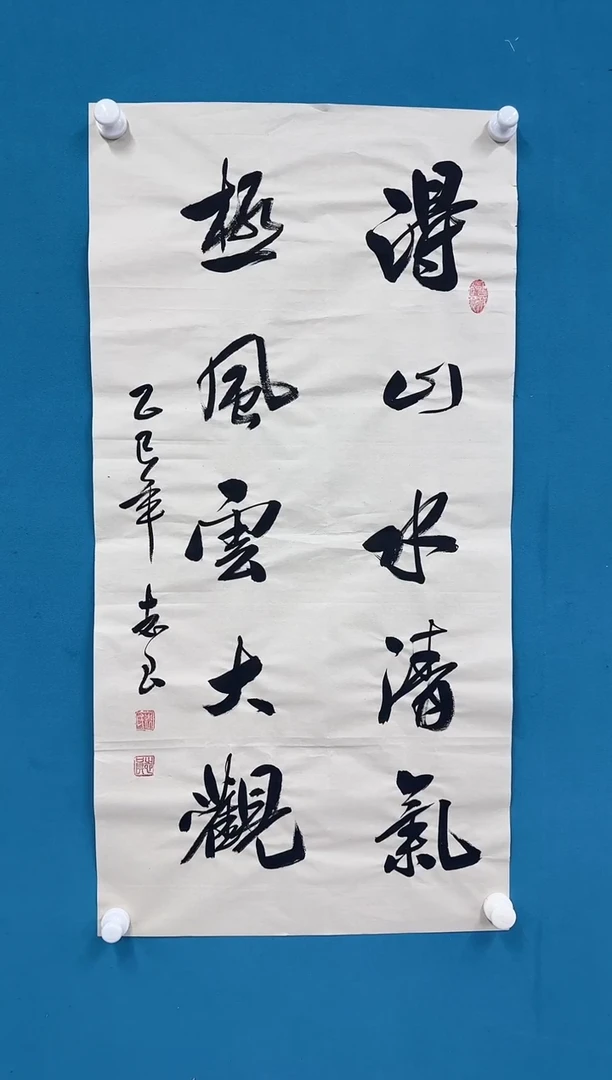 得山水清氣
極風雲大觀
乙巳年 志